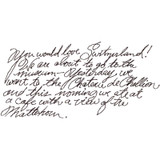 You would love Switzerland!
We are about to go to the
museum - yesterday, we
went to the Chateau de Chillion
and this morning we ate at
a cafe with a view of the
Matterhorn.